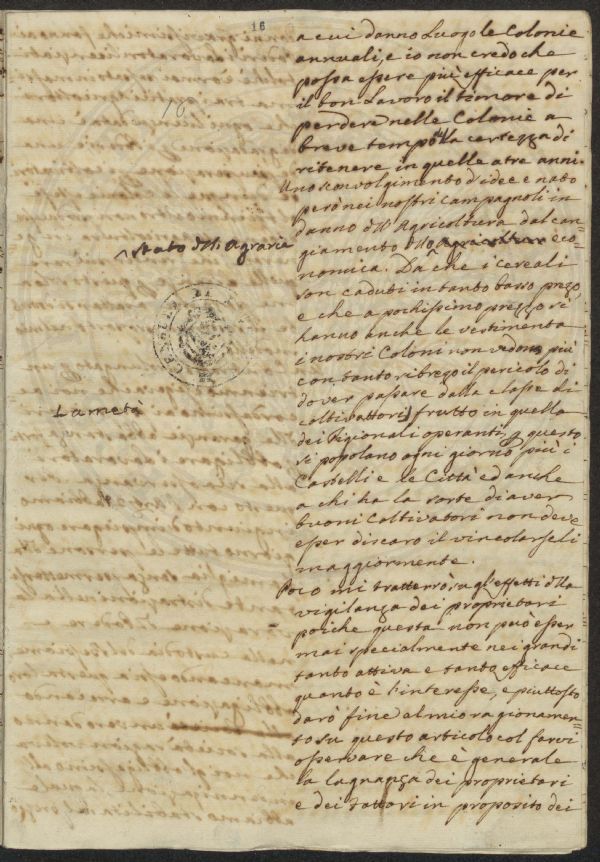 16
16
a cui danno Luogo le Colonie
annuali, e io non credo che
possa essere più efficace per
il bon Lavoro il timore di
perdere nelle Colonie a
breve tempo, della certezza di
ritenere in quelle a tre anni.
Uno sconvolgimento d'idee e nato
però nei nostri Campagnoli in
danno dll' Agricoltura dal can=
giamento eco=
^ stato dll' agraria
nomica. Da che i cereali
son caduti in tanto basso prezo,
e che a pochissimo prezzo si
hanno anche le vestimenta
i nostri Coloni non vedono più
con tanto ribrezo il pericolo di
dover passare dalla classe di
coltivattori frutto in quella
La metà
dei Pigionali operanti, e questo
si popolano ogni giorno più i
Castelli e le Città ed anche
a chi ha la sorte di aver
buoni Coltivatori non deve
esser discaro il vincolarseli
maggiormente.
Poco mi tratterrò su gl'effetti dlla
vigilanza dei proprietari
poiche questa non può esser
mai specialmente nei grandi
tanto attiva e tanto efficace
quanto è l'interesse, e piuttosto
darò fine al mio ragionamen=
to su questo articolo col farvi
osservare che è generale
la lagnanza dei proprietari
e dei Fattori in proposito dei